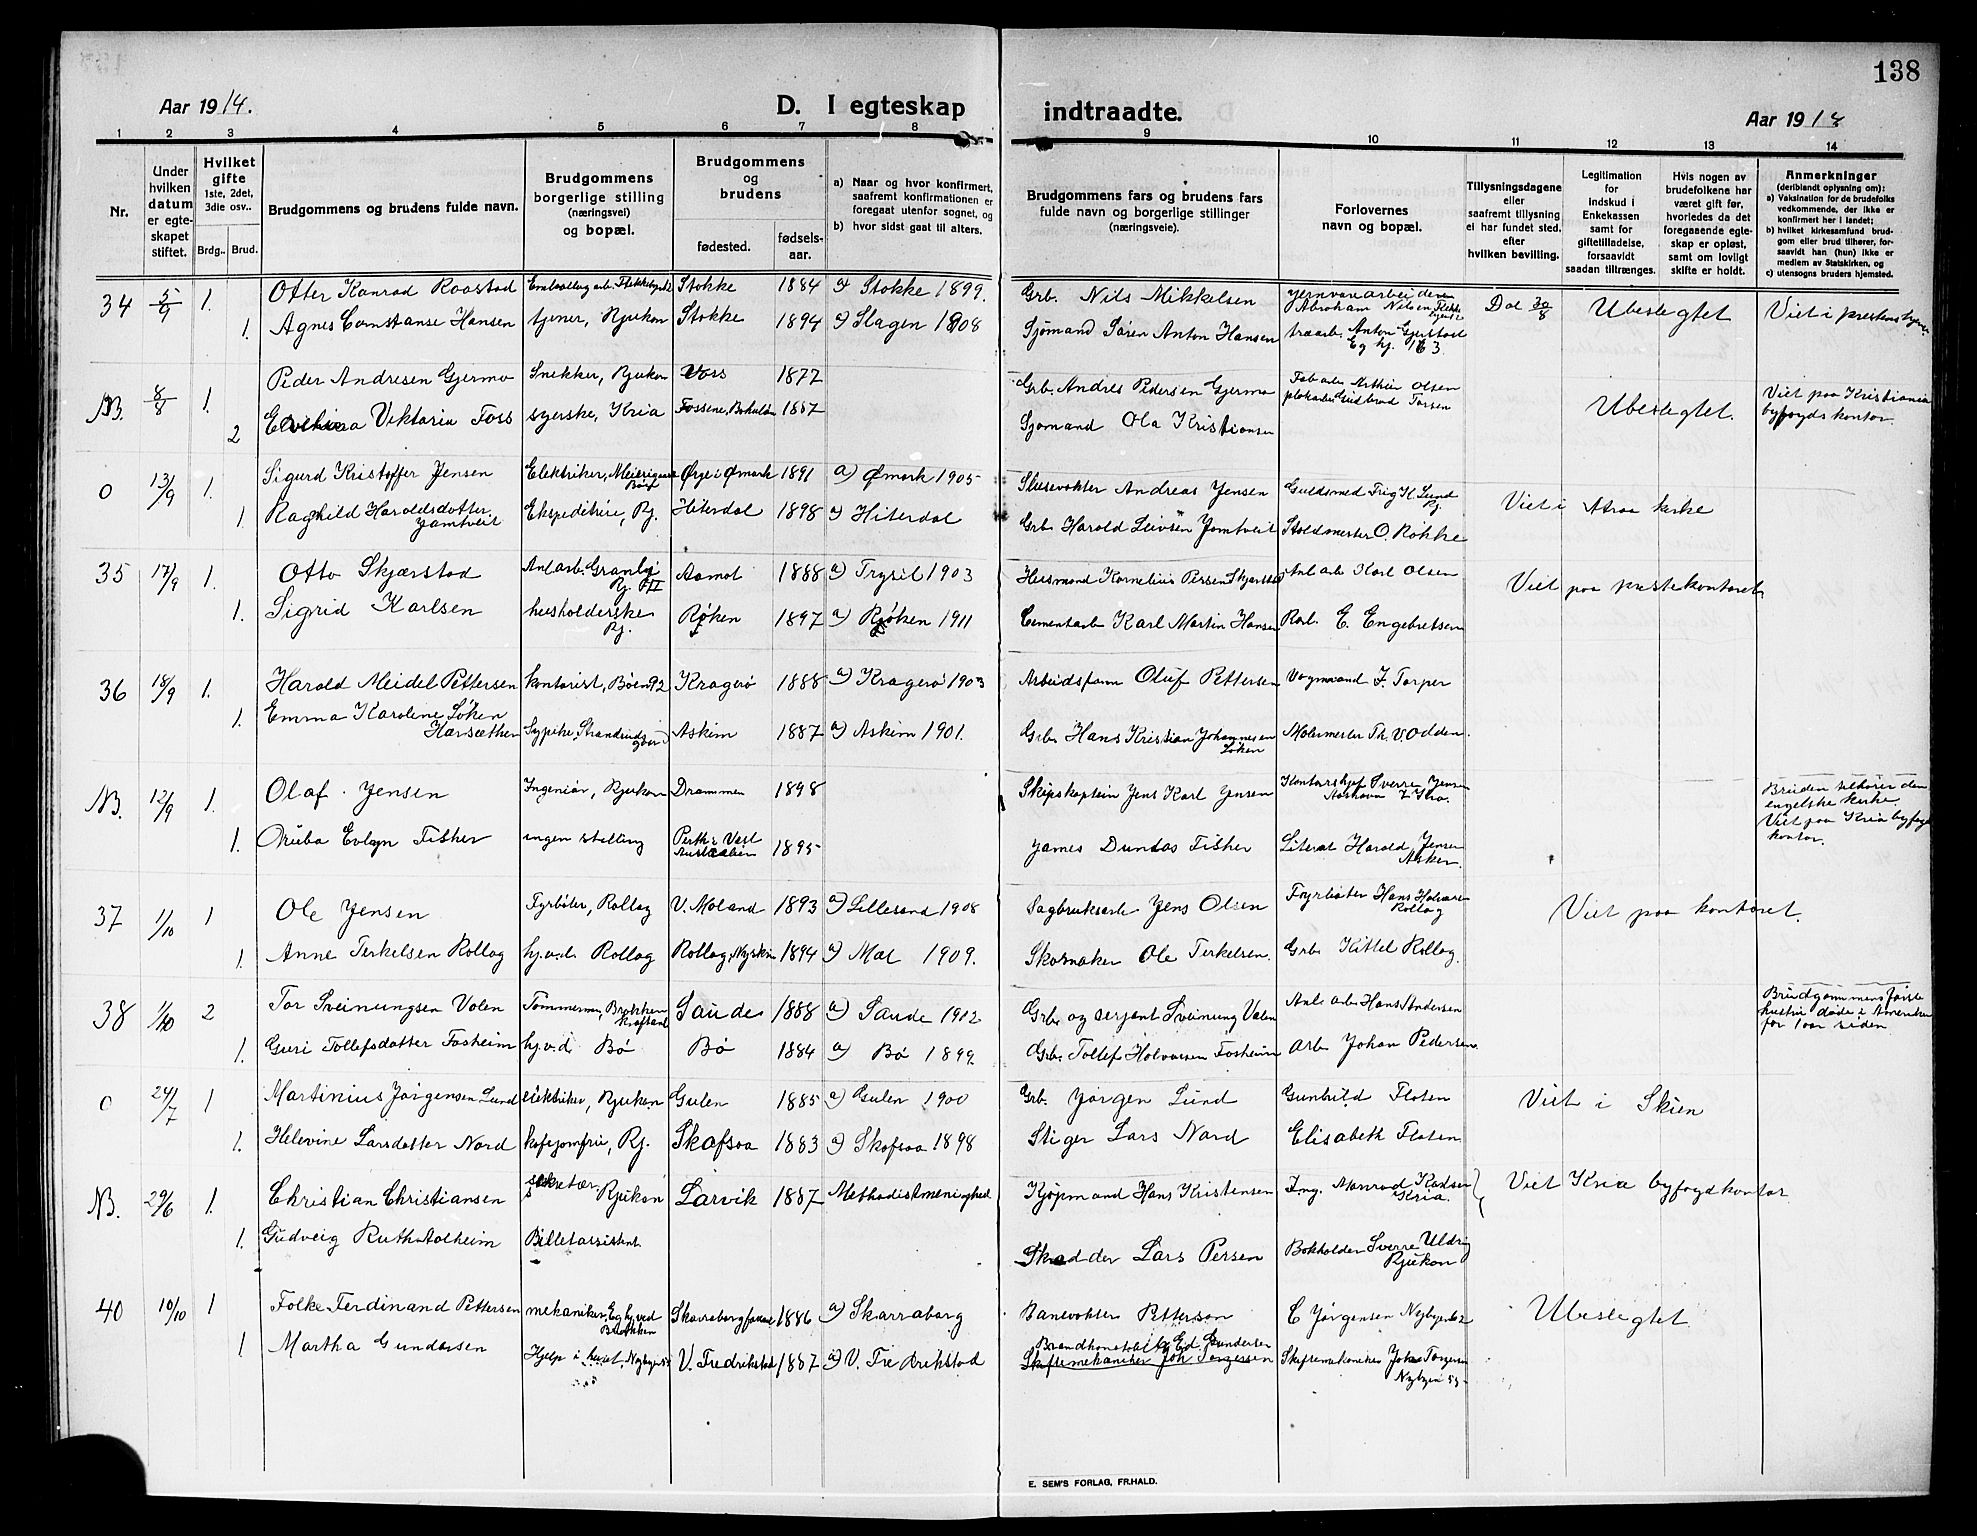 138
Aar 1914.
D. I egteskap indtraadte.
Aar 191
1 2 3 4 5 6 7 8 9 10 11 12 13 14
Nr.
Under hvilken datum er egteskapet stiftet.
Hvilket gifte
1ste, 2det, 3die osv..
Brdg.. Brud.
Brudgommens og brudens fulde navn.
Brudgommens borgerlige stilling (næringsvei) og bopæl.
Brudgommens og brudens
fødested.
fødselsaar.
a) Naar og hvor konfirmert, saafremt konfirmationen er foregaat utenfor sognet, og
b) hvor sidst gaat til alters.
Brudgommens fars og brudens fars fulde navn og borgerlige stillinger (næringsveie).
Forlovernes navn og bopæl.
Tillysningsdagene eller saafremt tillysning ei har fundet sted, efter hvilken bevilling.
Legitimation for Indskud i Enkekassen samt for giftetilladelse, forsaavidt saadan tiltrænges.
Hvis nogen av brudefolkene har været gift før, hvorledes da det foregaaende egteskap er opløst, samt om lovligt skifte er holdt.
Anmerkninger
(deriblandt oplysning om):
a) Vaksination for de brudefolks vedkommende, der ikke er konfirmert her i landet;
b) hvilket kirkesamfund brudgom eller brud tilhører, forsaavidt han (hun) ikke er medlem av Statskirken, og
c) utensogns bruders hjemsted.
34 5/9 1. Otter Konrad Raastad Stokke 1884 a) Stokke 1899. Grb. Nils Mikkelsen Jernvarearbeideren Abraham Nilsen Dal 30/8 Ubeslegtet Viet i
1. Agnes Constanse Hansen tjener, Rjukan Stokke 1894 a) Slagen 1908 Sjømand Søren Anton Hansen træarb. Anton Gjerstad Eg hj. 163.
NB. 8/8 1. Peder Andresen Gjermo Snekker, Rjukan Vors 1877 Grb. Andres Pedersen Gjermo Fab arb. Arthur Olsen Gudbrad Torsen Ubeslegtet. Viet paa Kristiania byfogdskontor.
2 Viktoria Foss syerske, Kria Fossene, 1887 Sjømand Ola Kristiansen
0 13/9 1. Sigurd Kristoffer Jensen Elektriker, Ørje i Ømark 1891 a) Ømark 1905 Slusevokter Andreas Jensen Guldsmed Trig H. Lund Rj. Viet i Atraa kirke
1. Ragnhild Haroldsdotter Jamtveit Ekspeditrice, Rj. Hiterdal 1898 a) Hiterdal Grb. Harold Leivsen Jamtveit Staldmester O. Røkke
35 17/9 1. Otto Skjærstad Anl arb. Aamot 1888 a) Trysil 1903 Husmand Kornelius Persen Skjærstad Anl arb Karl Olsen Viet paa prestekontoret
1. Sigrid Karlsen husholderske Rj. Røken 1897 a) Røken 1911 Cementarb Karl Martin Hansen E. Engebretsen
36 18/9 1. Harald Meidel Pettersen kontorist, Bøen 92 Kragerø 1888 a) Kragerø 1903 Arbeidsform Oluf Pettersen Vognmand J. Torper
1. Emma Karoline Løken Harsæther Sypike, Askim 1887 a) Askim 1901. Grb. Hans Kristian Johannesen Løken Malermester Th. V. Odden.
NB. 12/9 1. Olaf Jensen Ingeniør, Rjukan Drammen 1898 Skipskaptein Jens Karl Jensen Kontorchef Sverre Jensen Bruden tilhører den engelske kirke. Viet paa Kria byfogd kontor.
1. Evlyn Fisher ingen stilling Perth i Vest Australien 1895 James Dundas Fisher Literat Harald Jensen Asker.
37 1/10 1 Ole Jensen Fyrbøter, Rollag V. Moland 1893 a) Lillesand 1908 Sagbruksarb Jens Olsen Fyrbøter Hans Rollag Viet paa kontoret.
1. Anne Terkelsen Rollag hj.v.d. Rollag Rollag, 1894 a) Mæl 1909. Skomaker Ole Terkelsen. Grb. Kittel Rollag.
38 1/10 2 Tor Sveinungsen Valen Tømmerman, Saude 1888 a) Saude 1902 Grb. og serjant Sveinung Valen Anl. arb. Hans Andersen Brudgommens første hustru døde i Amerika for 1 aar siden
1. Guri Tollefsdatter Fosheim hj.v.d. Bø Bø 1884 a) Bø 1899 Grb. Tollef Halvorsen Fosheim arb. Johan Pedersen.
0 24/7 1 Martinius Jørgensen Lund elektriker, Rjukan Gulen 1885 a) Gulen 1900 Grb. Jørgen Lund Gunhild Floten Viet i Skien
1. Helevine Larsdatter Nord kafejomfru, Rj. Skafsaa 1883 a) Skafsaa 1898 Stiger Lars Nord Elisabeth Floten
NB. 29/6 1. Christian Christiansen sekretær Rjukan Larvik 1887 Methodistmenighed Kjøpmand Hans Kristensen Ing. Monrad Kria. Viet Kria byfogdkontor
1. Gudveig Ruth Aolheim Billetassistent Skrædder Lars Persen Bokholder Sverre Uldrig Rjukan
40 10/10 1 Folke Ferdinand Pettersen mekaniker, Eg hj. ved Bækken 1886 a) Skarraborg Banevokter Petterson C Jørgensen Ubeslegtet.
1 Martha Gundersen Hjelp i huset, V. Fredrikstad 1887 a) V. Fredrikstad Ed. Gundersen Skiftemekaniker Joh Torgersen Skiftemekaniker Johs Torgersen
E. SEM'S FORLAG, FR.HALD.